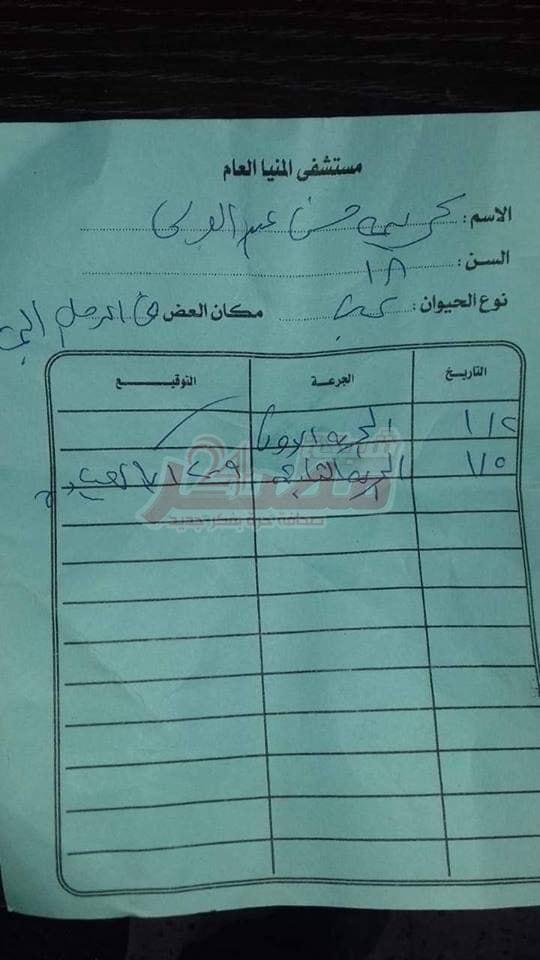 مستشفى المنيا العام
الاسم: حسن عبد
السن: ١٨
نوع الحيوان: كلب مكان العض: في الرجل
التاريخ الجرعة التوقيع
١/٢ الجرعة الاولى
١/٥ الجرعة الثانية
24
صحافة حرة بفكر جديد